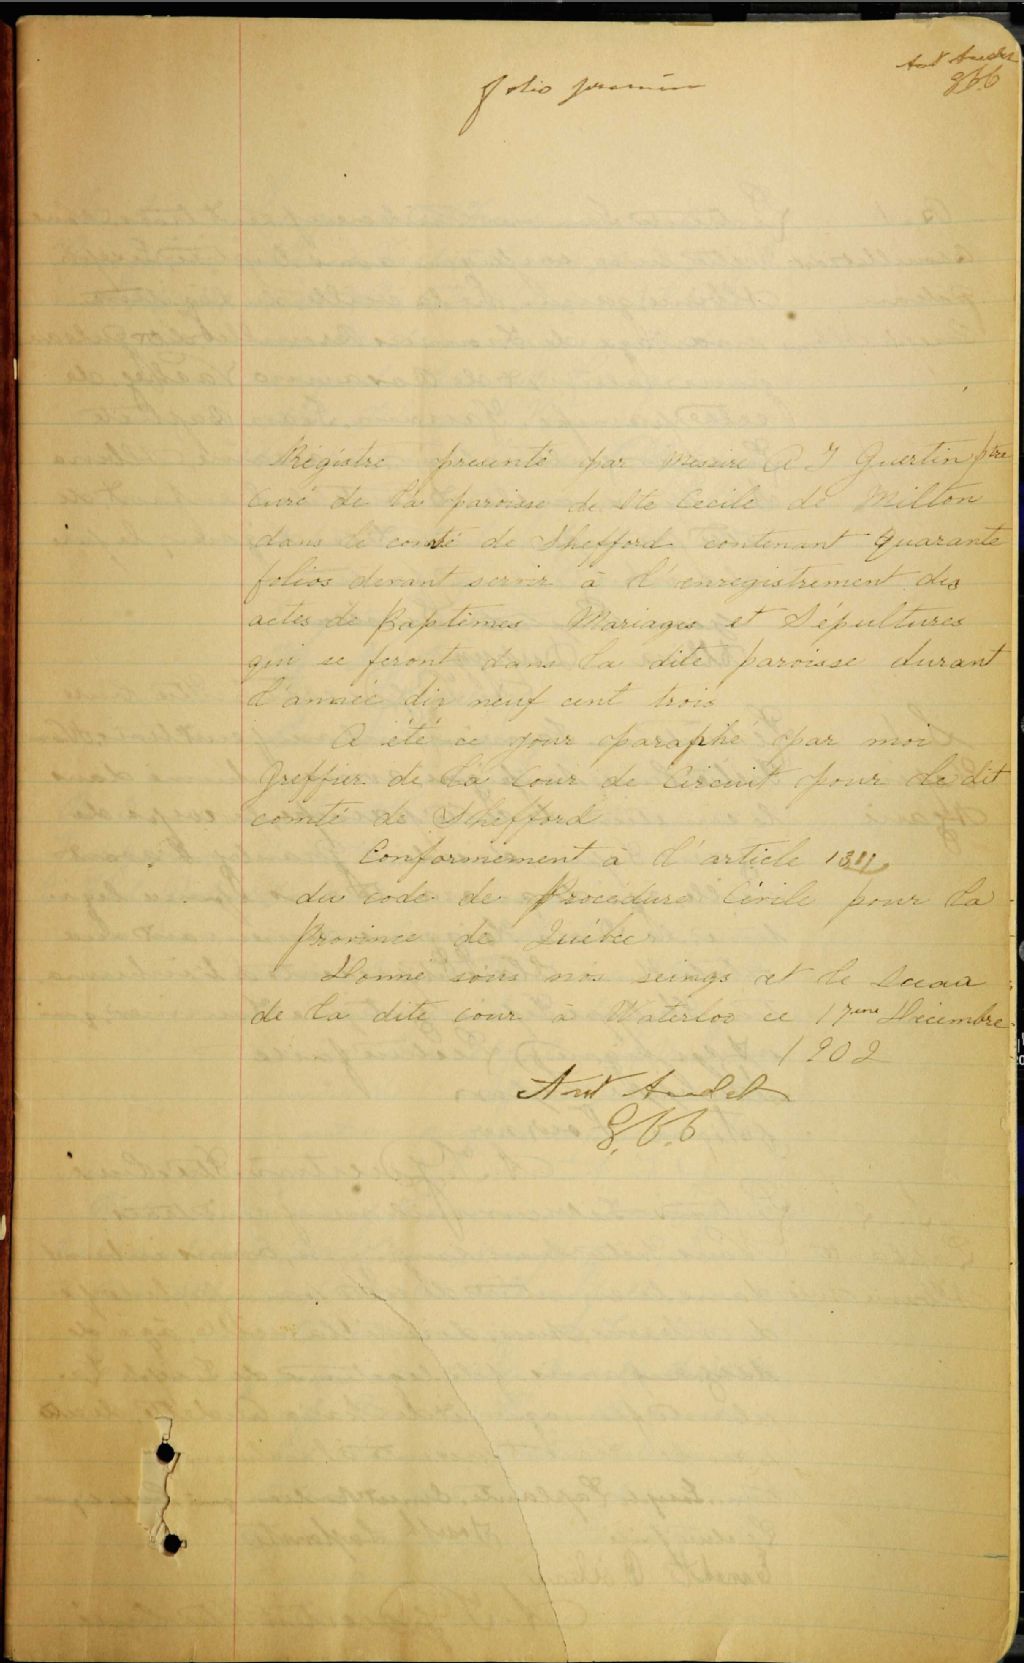 Ant Audet
g c c
folio premier
Régistre présenté par Messire A J Guertin ptre
curé de la paroisse de Ste Cecile de Milton
dans le comté de Shefford contenant Quarante
folios devant servir à l'enregistrement des
actes de Baptêmes Mariages et Sépultures
qui se feront dans la dite paroisse durant
l'année dix neuf cent trois
A été ce jour paraphé par moi
Greffier de la Cour de Circuit pour le dit
comté de Shefford
Conformement à l'article 1311
du code de Procédure Civile pour la
Province de Québec
Donné sous nos seings et le sceau
de la dite cour à Waterloo ce 17eme Décembre
1902
Ant Audet
g.c.c